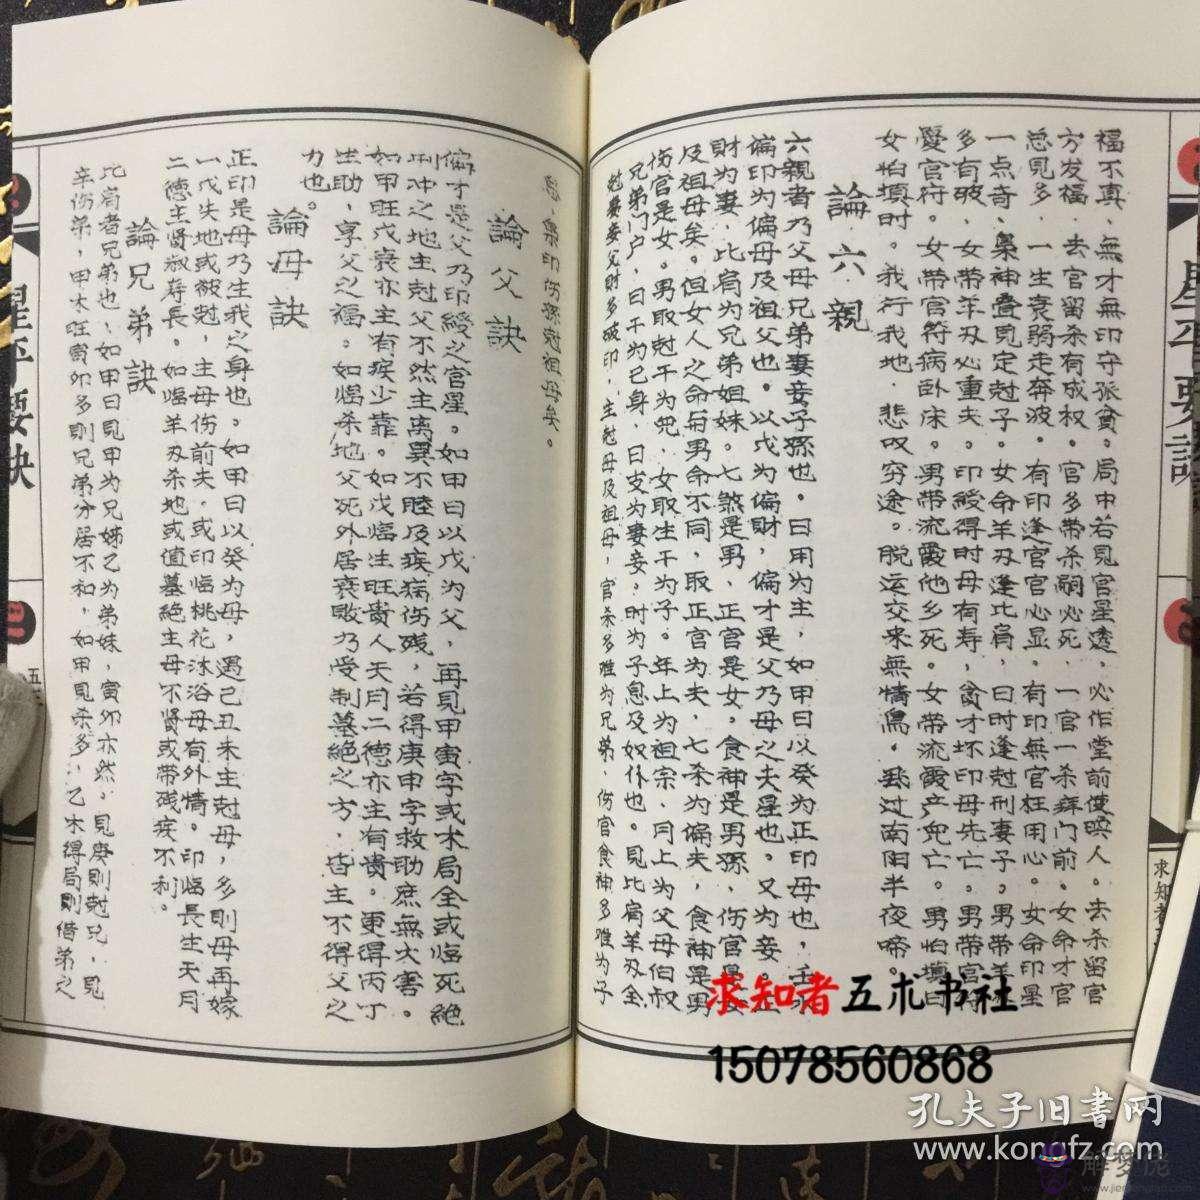 福不真，無才無印守張貪。局中若見官星透，必作堂前使喚人。去杀留官
方发福，去官留杀有成权。官多带杀嗣必死，一官一杀病门前。女命才官
忌見多，一生衰弱走奔波。有印逢官官必显，有印無官枉用心。女命印星
一点奇，梟神叠見定尅子。女命羊刃逢比肩，日时逢尅刑妻子。男带羊
多有破，女带羊刃必重夫。印綬得时母有寿，貪才坏印母先亡。男带官符
愛官府。女带官符病卧床。男带流霞他乡死。女带流霞产兜亡。男怕填日
女怕填时。我行我地，悲叹穷途。脱运交来無情焉。過南阳半夜啼。
論六親
六親者乃父母兄弟妻妾子孫也。日用为主，如甲日以癸为正印母也，壬水
偏印为偏母及祖父也。以戊为偏財，偏才是父乃母之夫星也。又为妾。
財为妻，比肩为兄弟姐妹。七煞是男，正官是女。食神是男孫，伤官是
及祖母矣。但女人之命与男命不同，取正官为夫，七杀为偏夫，食神是男
伤官是女。男取尅干为兜，女取生干为子。年上为祖宗，月上为父母伯叔
兄弟门户，日干为己身，日支为妻妾，时为子息及奴仆也。見比肩羊刃全
尅妻妾父財多破印，主尅母及祖母，官杀多难为兄弟，伤官食神多难为子
息，梟印伤孫尅祖母矣。
論父訣
偏才是父乃印綬之官星。如甲日以戊为父，再見甲寅字或木局全或临死絕
刑冲之地主尅父不然主离異不睦及疾病伤残，若得庚申字救助庶無大害。
如甲旺戊衰亦主有疾少靠。如戊临生旺貴人天月二德亦主有貴。更得丙丁
生助，享父之福。如临杀地父死外居衰敗乃受制墓絕之方，皆主不得父之
力也。
論母訣
正印是母乃生我之身也。如甲日以癸为母，遇己丑未主尅母，多則母再嫁
一戊失地或被尅，主母伤前夫。或印临桃花沐浴母有外情。印临長生天月
二德主賢淑寿長。如临羊刃杀地或值墓絕主母不賢或带残疾不利。
論兄弟訣
比肩者兄弟也，如甲日見甲为兄姊乙为弟妹，寅卯亦然。見庚則尅兄，見
辛伤弟，甲木旺寅卯多則兄弟分居不和，如甲見杀多，乙木得局則借弟之
星平要訣
求知者五术书社
15078560868
孔夫子旧書网
www.kongfz.com